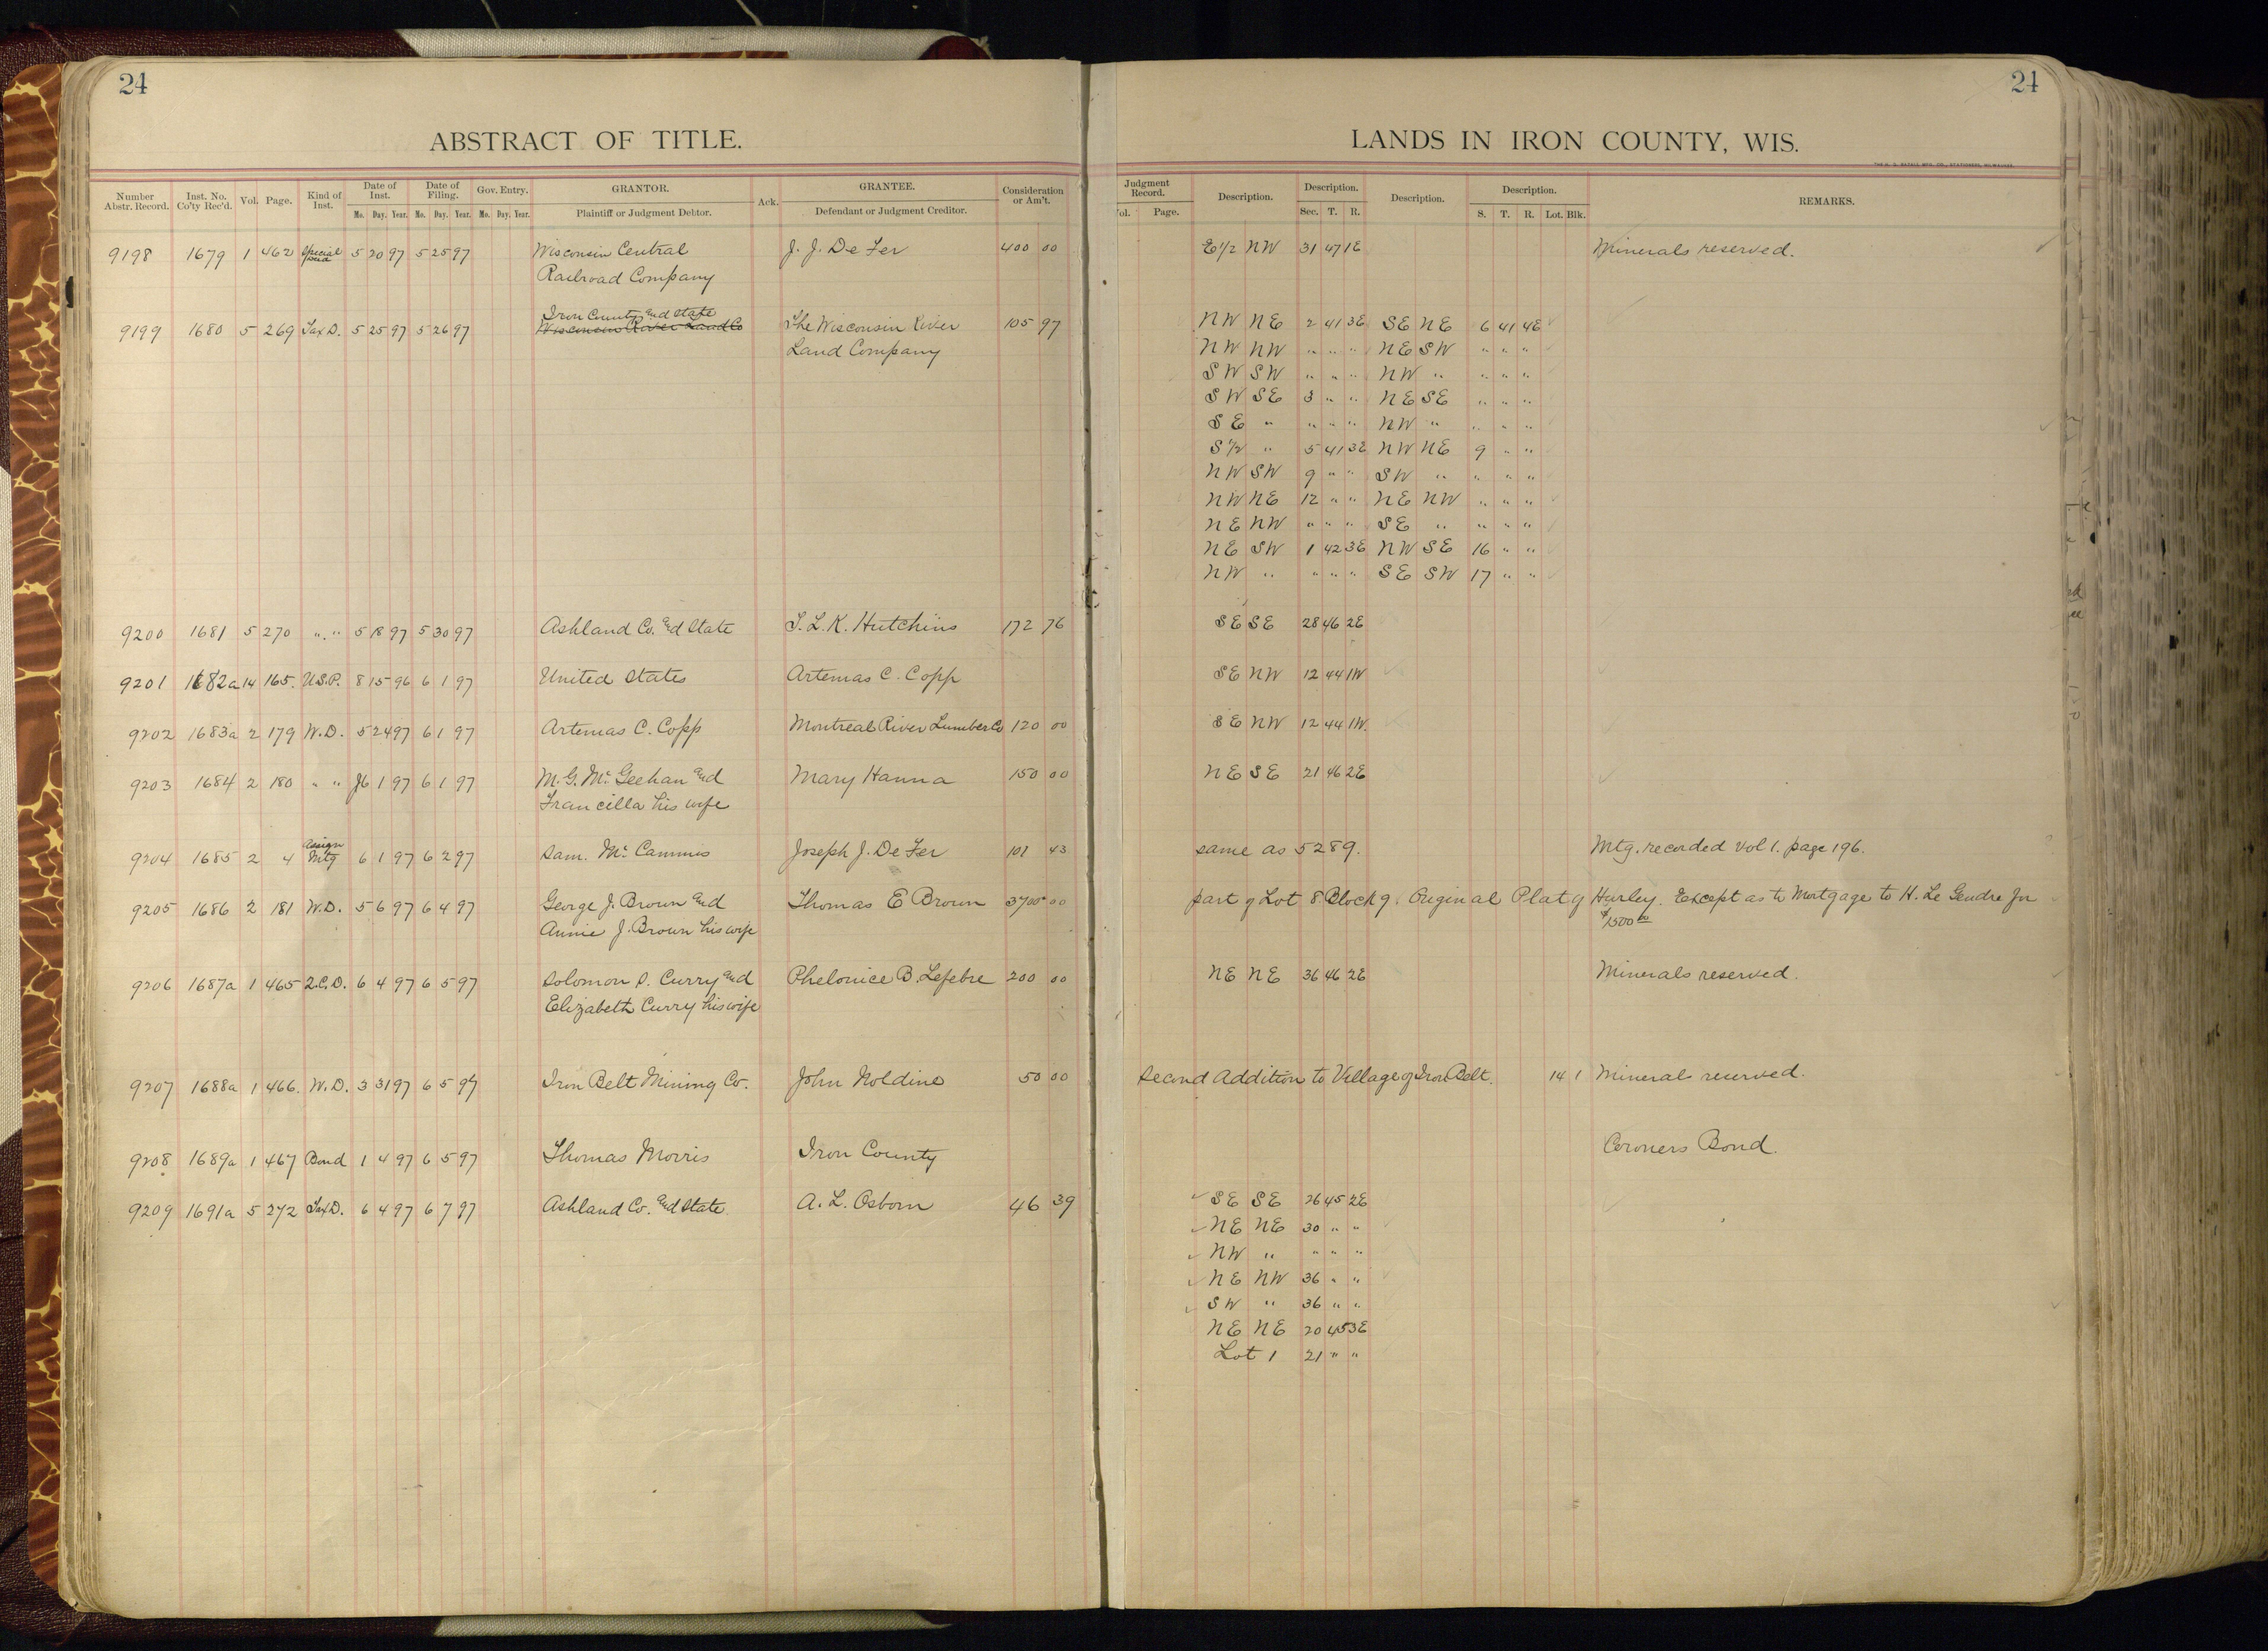 24
24
ABSTRACT OF TITLE.
LANDS IN IRON COUNTY, WIS.
Number Abstr. Record. Inst. No. Co'ty Rec'd. Vol. Page. Kind of Inst. Date of Inst. Mo. Day. Year. Date of Filing. Mo. Day. Year. Gov. Entry. Mo. Day. Year. GRANTOR. Plaintiff or Judgment Debtor. Ack. GRANTEE. Defendant or Judgment Creditor. Consideration or Am't. Judgment Record. Vol. Page. Description. Description. Sec. T. R. Description. Description. S. T. R. Lot. Blk. REMARKS.
9198 1679 1 462 Special Deed 5 20 97 5 25 97 Wisconsin Central J. J. De Fer 400 00 E1/2 NW 31 47 1E Minerals reserved.
Railroad Company
Iron County and State
9199 1680 5 269 Tax D. 5 25 97 5 26 97 Wisconsin River Land Co The Wisconsin River 105 97 NW NE 2 41 3E SE NE 6 41 4E
Land Company NW NW " " " NE SW " " "
SW SW " " " NW " " " "
SW SE 3 " " NE SE " " "
SE " " " " NW " " " "
S1/2 " 5 41 3E NW NE 9 " "
NW SW 9 " " SW " " " "
NW NE 12 " " NE NW " " "
NE NW " " " SE " " " "
NE SW 1 42 3E NW SE 16 " "
NW " " " " SE SW 17 " "
9200 1681 5 270 " " 5 18 97 5 30 97 Ashland Co. and State S. L. K. Hutchins 172 76 SE SE 28 46 2E
9201 1682a 14 165. U.S.P. 8 15 96 6 1 97 United States Artemas C. Copp SE NW 12 44 1W
9202 1683a 2 179 W.D. 5 24 97 6 1 97 Artemas C. Copp Montreal River Lumber Co 120 00 SE NW 12 44 1W.
9203 1684 2 180 " " 6 1 97 6 1 97 M. G. Mc Geehan and Mary Hanna 150 00 NE SE 21 46 2E
Francilla his wife
9204 1685 2 4 Assign Mtg 6 1 97 6 2 97 Sam. Mc Cammis Joseph J. De Fer 101 43 same as 5289. Mtg. recorded vol 1. page 196.
9205 1686 2 181 W.D. 5 6 97 6 4 97 George J. Brown and Thomas E Brown 3700 00 part of Lot 8 Block 9. Original Plat of Hurley. Except as to Mortgage to H. Le Gendre Jr
Annie J. Brown his wife $1500 00
9206 1687a 1 465 Q.C.D. 6 4 97 6 5 97 Solomon S. Curry and Phelonice B. Lefebre 200 00 NE NE 36 46 2E Minerals reserved.
Elizabeth Curry his wife
9207 1688a 1 466. W.D. 3 31 97 6 5 97 Iron Belt Mining Co. John Noldino 50 00 Second Addition to Village of Iron Belt. 14 1 Minerals reserved.
9208 1689a 1 467 Bond 1 4 97 6 5 97 Thomas Morris Iron County Coroners Bond.
9209 1691a 5 272 Tax D. 6 4 97 6 7 97 Ashland Co. and State. A. L. Osborn 46 39 SE SE 26 45 2E
NE NE 30 " "
NW " " " "
NE NW 36 " "
SW " 36 " "
NE NE 20 45 3E
Lot 1 21 " "